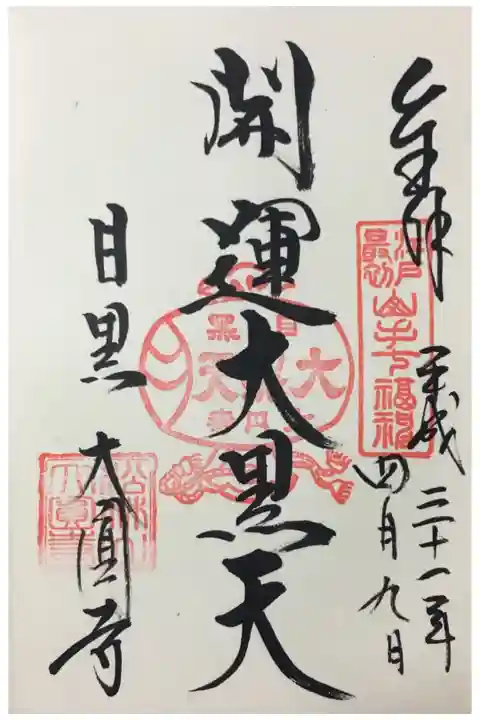 奉拝
江戸
最初
山手七福神
平成三十一年
四月九日
開運大黒天
目黒
大
天
目黒 大圓寺